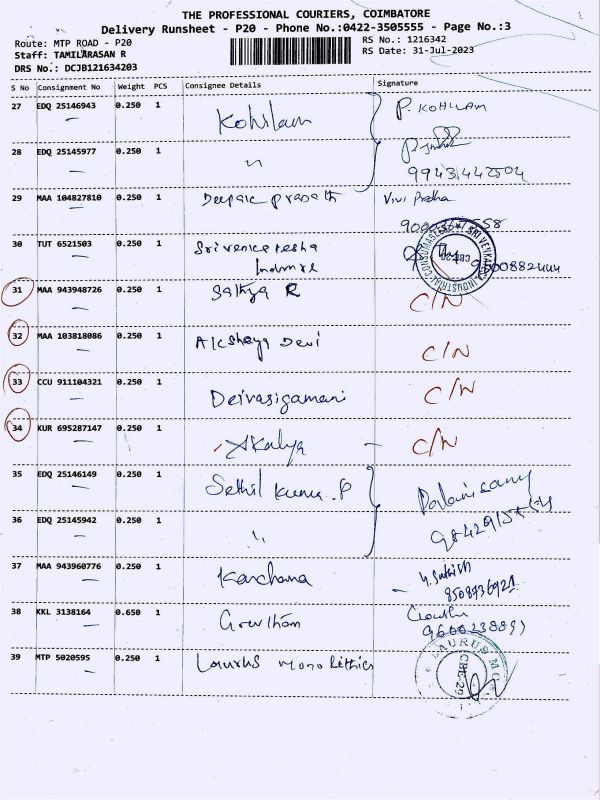 THE PROFESSIONAL COURIERS, COIMBATORE
Delivery Runsheet - P20 - Phone No.:0422-3505555 - Page No.:3
Route: MTP ROAD - P20 RS No.: 1216342
Staff: TAMILARASAN R RS Date: 31-Jul-2023
DRS No.: DCJB121634203
S No Consignment No Weight PCS Consignee Details Signature
27 EDQ 25146943 0.250 1 Kohilam P. KOHILAM
28 EDQ 25145977 0.250 1 "
29 MAA 104827810 0.250 1 Deepak prasath
30 TUT 6521503 0.250 1 Sri venkatesha
31 MAA 943948726 0.250 1 Sathya R C/N
32 MAA 103818086 0.250 1 Akshaya Devi C/N
33 CCU 911104321 0.250 1 Deivasigamani C/N
34 KUR 695287147 0.250 1 Akalya - C/N
35 EDQ 25146149 0.250 1
36 EDQ 25145942 0.250 1 "
37 MAA 943960776 0.250 1 Kanchana
8508936921
38 KKL 3138164 0.650 1 Gowtham
39 MTP 5020595 0.250 1 Laurus monolithics